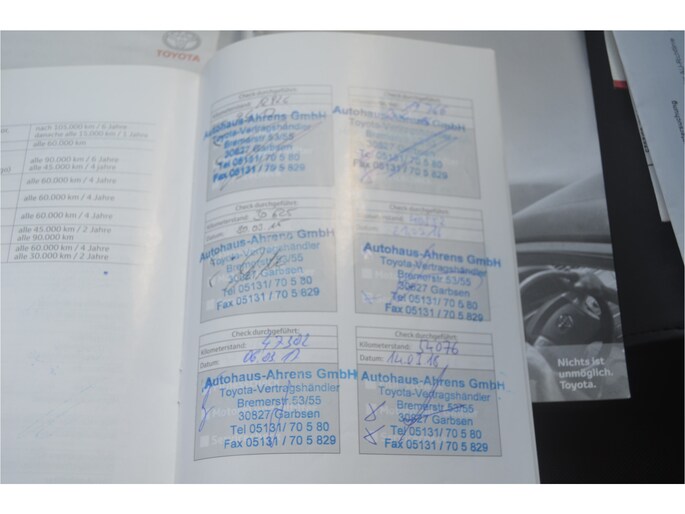 TOYOTA
nach 105.000 km / 6 Jahre
danach alle 15.000 km / 1 Jahre
alle 60.000 km
alle 90.000 km / 6 Jahre
alle 45.000 km / 4 Jahre
alle 60.000 km / 4 Jahre
alle 60.000 km / 4 Jahre
alle 60.000 km / 4 Jahre
alle 45.000 km / 2 Jahre
alle 90.000 km
alle 60.000 km / 4 Jahre
alle 30.000 km / 2 Jahre
Check durchgeführt:
Autohaus-Ahrens GmbH
Toyota-Vertragshändler
Bremerstr.53/55
30827 Garbsen
Tel 05131/ 70 5 80
Fax 05131 / 70 5 829
Autohaus-Ahrens GmbH
Toyota-Vertragshändler
Bremerstr.53/55
30827 Garbsen
Tel 05131/ 70 5 80
Fax 05131 / 70 5 829
Check durchgeführt:
Kilometerstand: 30 625
Datum:
Autohaus-Ahrens GmbH
Toyota-Vertragshändler
Bremerstr.53/55
30827 Garbsen
Tel 05131/ 70 5 80
Fax 05131 / 70 5 829
Autohaus-Ahrens GmbH
Toyota-Vertragshändler
Bremerstr.53/55
30827 Garbsen
Tel 05131/ 70 5 80
Fax 05131 / 70 5 829
Check durchgeführt:
Kilometerstand: 47302
Datum:
Autohaus-Ahrens GmbH
Toyota-Vertragshändler
Bremerstr.53/55
30827 Garbsen
Tel 05131/ 70 5 80
Fax 05131 / 70 5 829
Check durchgeführt:
Kilometerstand: 54076
Datum:
Autohaus-Ahrens GmbH
Toyota-Vertragshändler
Bremerstr.53/55
30827 Garbsen
Tel 05131/ 70 5 80
Fax 05131 / 70 5 829
Nichts ist
unmöglich.
Toyota.